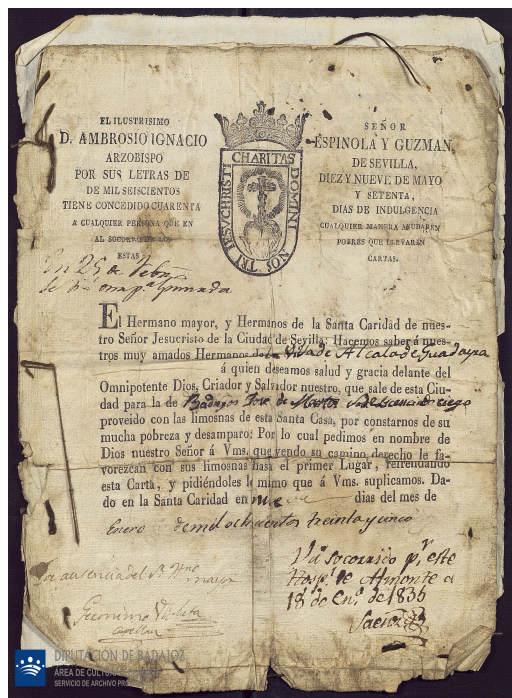 EL ILUSTRISIMO
D. AMBROSIO IGNACIO
ARZOBISPO
POR SUS LETRAS DE
DE MIL SEISCIENTOS
TIENE CONCEDIDO CUARENTA
A CUALQUIER PERSONA QUE EN
AL SOCORRO DE LOS
ESTAS
CHARITAS DOMINI NOSTRI IESU CHRISTI
SEÑOR
ESPINOLA Y GUZMAN,
DE SEVILLA,
DIEZ Y NUEVE DE MAYO
Y SETENTA,
DIAS DE INDULGENCIA
CUALQUIER MANERA AYUDAREN
POBRES QUE LLEVAREN
CARTAS.
En 25 de
El Hermano mayor, y Hermanos de la Santa Caridad de nues-
tro Señor Jesucristo de la Ciudad de Sevilla: Hacemos saber á nues-
tros muy amados Hermanos de la Villa de Alcala de Guadayra
á quien deseamos salud y gracia delante del
Omnipotente Dios, Criador y Salvador nuestro, que sale de esta Ciu-
dad para la de Badajos Jose de ciego
proveido con las limosnas de esta Santa Casa, por constarnos de su
mucha pobreza y desamparo: Por lo cual pedimos en nombre de
Dios nuestro Señor á Vms. que yendo su camino derecho le fa-
vorezcan con sus limosnas hasta el primer Lugar, refrendando
esta Carta, y pidiéndoles lo mimo que á Vms. suplicamos. Da-
do en la Santa Caridad en nueve dias del mes de
Enero de mil ochocientos treinta y cinco
Por ausencia del Sr Hno mayor
Geronimo de
Va socorrido pr este
Hospl de Almonte a
18 de Eno de 1835
Saenz
DIPUTACIÓN DE BADAJOZ
ÁREA DE CULTURA
SERVICIO DE ARCHIVO PRO